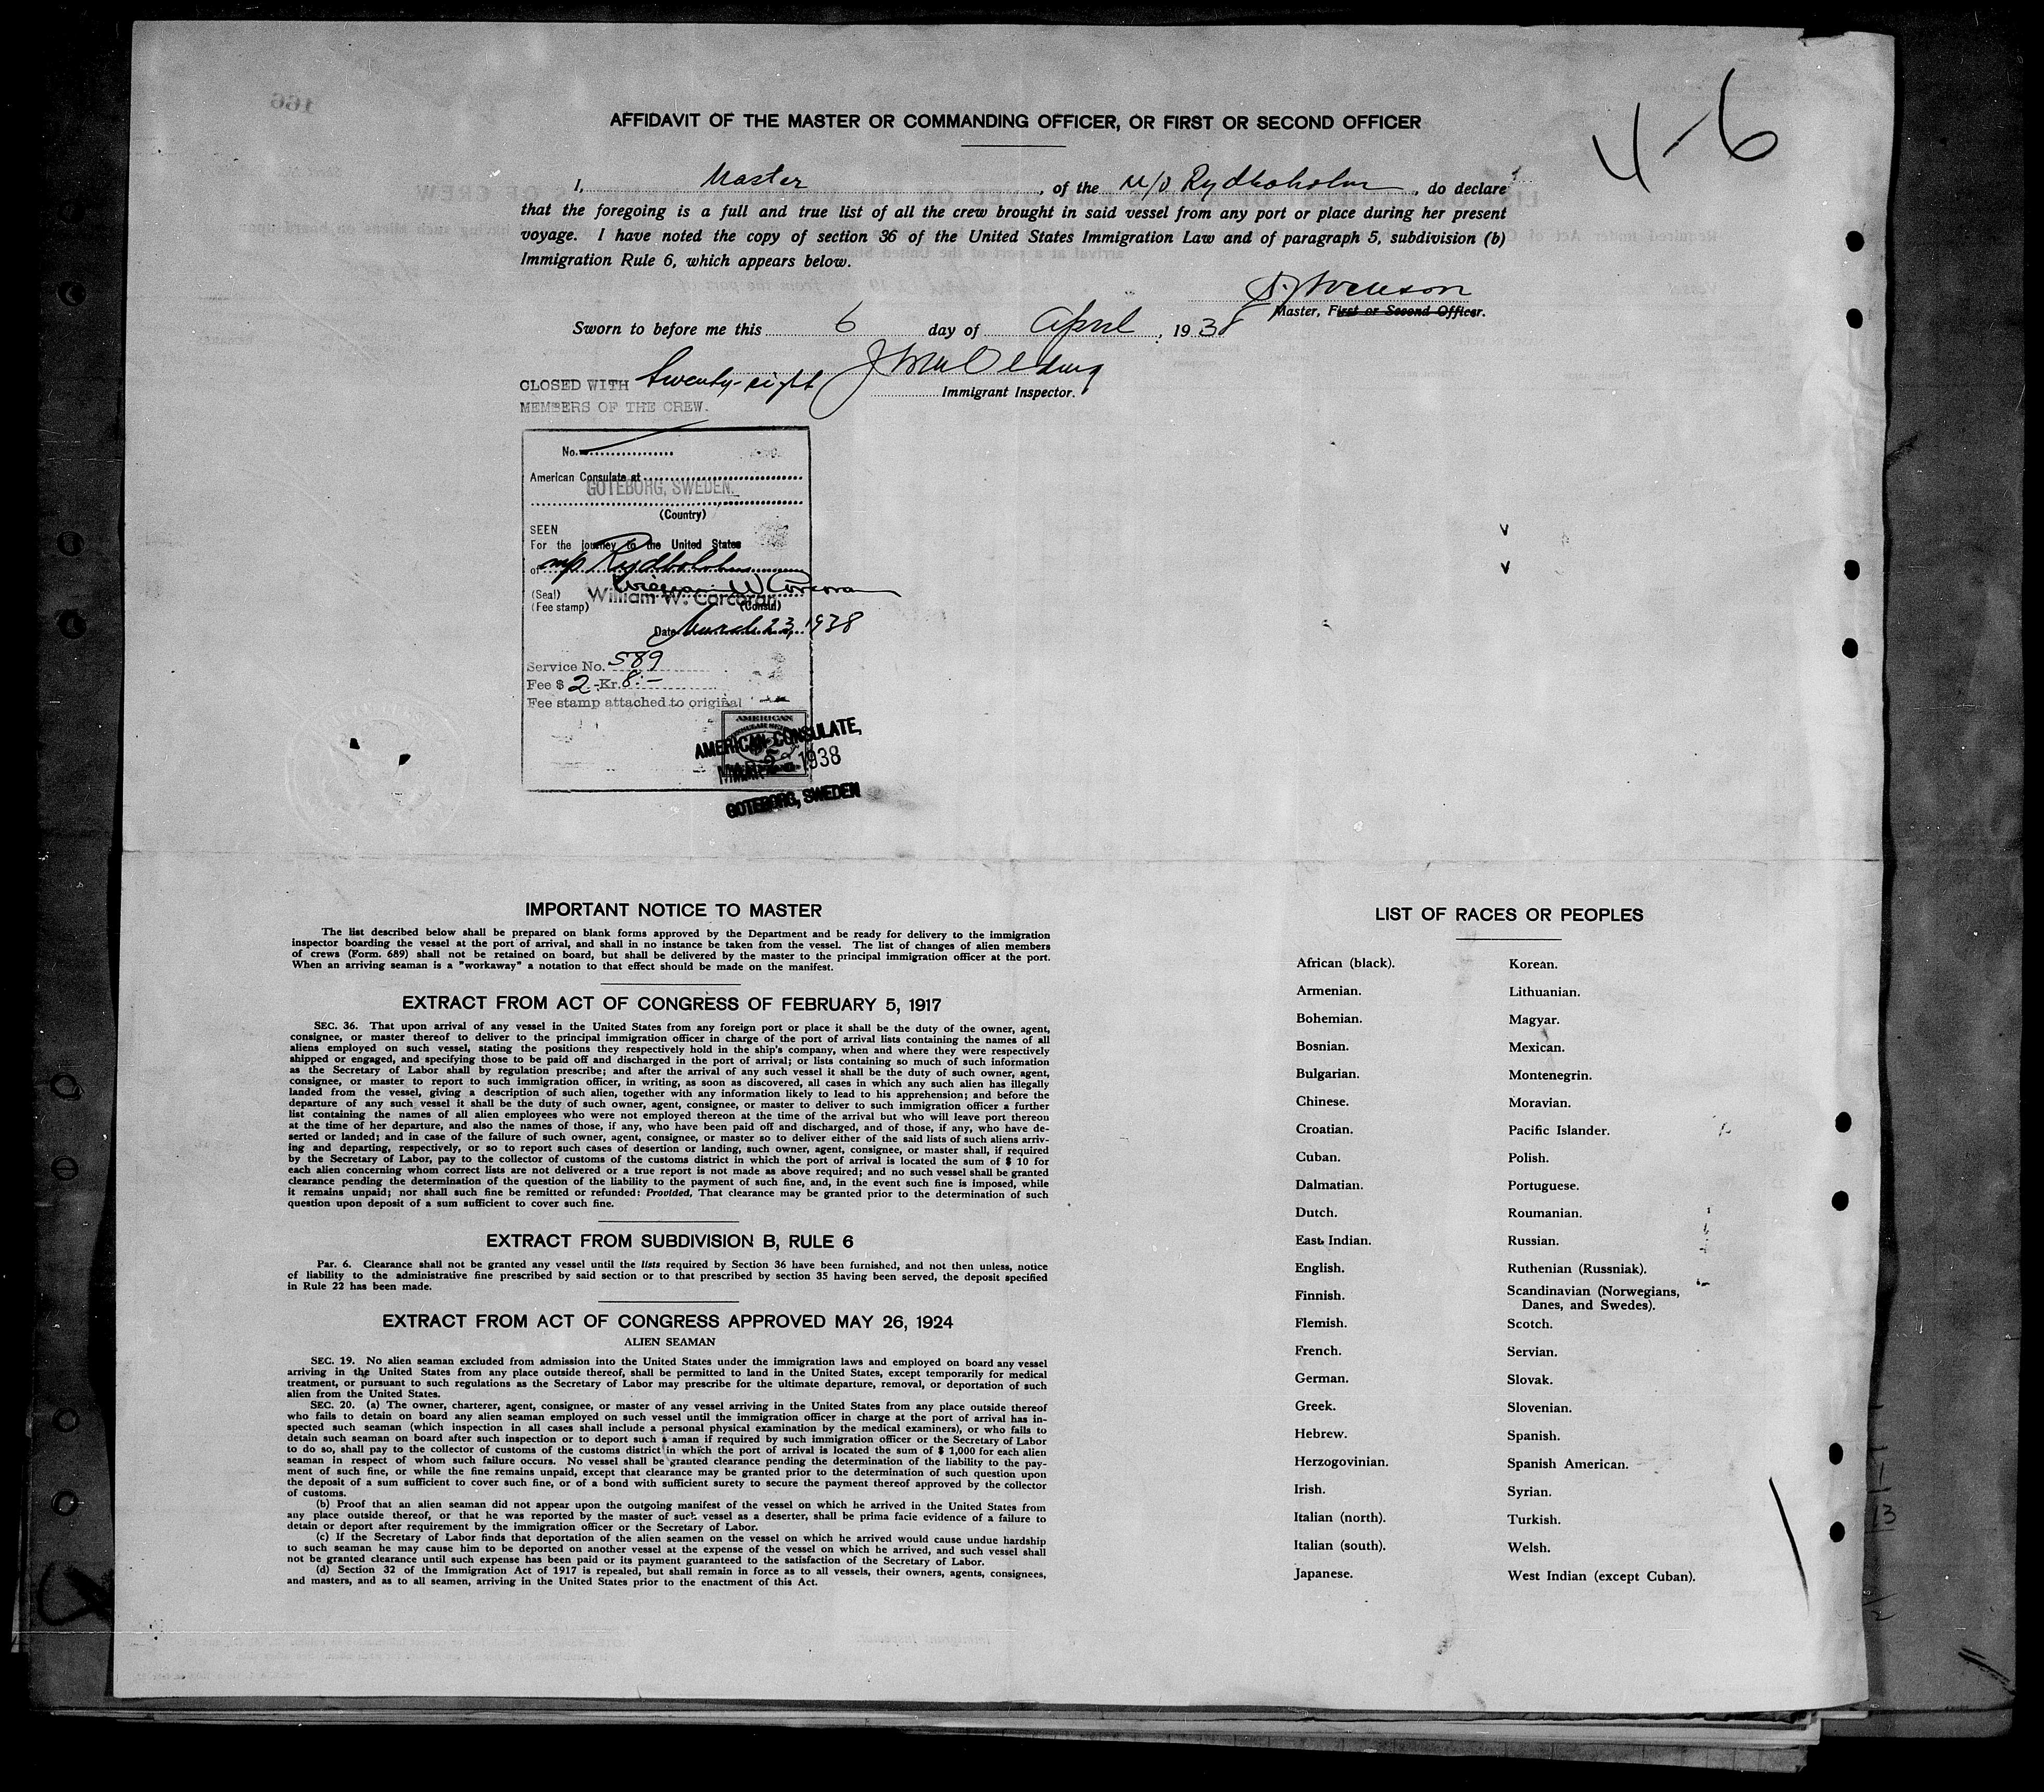 4-6
AFFIDAVIT OF THE MASTER OR COMMANDING OFFICER, OR FIRST OR SECOND OFFICER
I, Master, of the M/S Rydboholm, do declare
that the foregoing is a full and true list of all the crew brought in said vessel from any port or place during her present
voyage. I have noted the copy of section 36 of the United States Immigration Law and of paragraph 5, subdivision (b)
Immigration Rule 6, which appears below.
Master, First or Second Officer.
Sworn to before me this 6 day of April, 1938
Immigrant Inspector.
CLOSED WITH twenty-eight
MEMBERS OF THE CREW.
No.
American Consulate at
GOTEBORG, SWEDEN.
(Country)
SEEN
For the journey to the United States
of m/s Rydboholm
(Seal) William W. Corcoran
(Fee stamp) William W. Corcoran (Consul)
Date March 23, 1938
Service No. 589
Fee $ 2.-Kr. 8:-
Fee stamp attached to original
AMERICAN
AMERICAN CONSULATE,
1938
GOTEBORG, SWEDEN
IMPORTANT NOTICE TO MASTER
The list described below shall be prepared on blank forms approved by the Department and be ready for delivery to the immigration
inspector boarding the vessel at the port of arrival, and shall in no instance be taken from the vessel. The list of changes of alien members
of crews (Form. 689) shall not be retained on board, but shall be delivered by the master to the principal immigration officer at the port.
When an arriving seaman is a "workaway" a notation to that effect should be made on the manifest.
EXTRACT FROM ACT OF CONGRESS OF FEBRUARY 5, 1917
SEC. 36. That upon arrival of any vessel in the United States from any foreign port or place it shall be the duty of the owner, agent,
consignee, or master thereof to deliver to the principal immigration officer in charge of the port of arrival lists containing the names of all
aliens employed on such vessel, stating the positions they respectively hold in the ship's company, when and where they were respectively
shipped or engaged, and specifying those to be paid off and discharged in the port of arrival; or lists containing so much of such information
as the Secretary of Labor shall by regulation prescribe; and after the arrival of any such vessel it shall be the duty of such owner, agent,
consignee, or master to report to such immigration officer, in writing, as soon as discovered, all cases in which any such alien has illegally
landed from the vessel, giving a description of such alien, together with any information likely to lead to his apprehension; and before the
departure of any such vessel it shall be the duty of such owner, agent, consignee, or master to deliver to such immigration officer a further
list containing the names of all alien employees who were not employed thereon at the time of the arrival but who will leave port thereon
at the time of her departure, and also the names of those, if any, who have been paid off and discharged, and of those, if any, who have de-
serted or landed; and in case of the failure of such owner, agent, consignee, or master so to deliver either of the said lists of such aliens arriv-
ing and departing, respectively, or so to report such cases of desertion or landing, such owner, agent, consignee, or master shall, if required
by the Secretary of Labor, pay to the collector of customs of the customs district in which the port of arrival is located the sum of $ 10 for
each alien concerning whom correct lists are not delivered or a true report is not made as above required; and no such vessel shall be granted
clearance pending the determination of the question of the liability to the payment of such fine, and, in the event such fine is imposed, while
it remains unpaid; nor shall such fine be remitted or refunded: Provided, That clearance may be granted prior to the determination of such
question upon deposit of a sum sufficient to cover such fine.
EXTRACT FROM SUBDIVISION B, RULE 6
Par. 6. Clearance shall not be granted any vessel until the lists required by Section 36 have been furnished, and not then unless, notice
of liability to the administrative fine prescribed by said section or to that prescribed by section 35 having been served, the deposit specified
in Rule 22 has been made.
EXTRACT FROM ACT OF CONGRESS APPROVED MAY 26, 1924
ALIEN SEAMAN
SEC. 19. No alien seaman excluded from admission into the United States under the immigration laws and employed on board any vessel
arriving in the United States from any place outside thereof, shall be permitted to land in the United States, except temporarily for medical
treatment, or pursuant to such regulations as the Secretary of Labor may prescribe for the ultimate departure, removal, or deportation of such
alien from the United States.
SEC. 20. (a) The owner, charterer, agent, consignee, or master of any vessel arriving in the United States from any place outside thereof
who fails to detain on board any alien seaman employed on such vessel until the immigration officer in charge at the port of arrival has in-
spected such seaman (which inspection in all cases shall include a personal physical examination by the medical examiners), or who fails to
detain such seaman on board after such inspection or to deport such s aman if required by such immigration officer or the Secretary of Labor
to do so, shall pay to the collector of customs of the customs district in which the port of arrival is located the sum of $ 1,000 for each alien
seaman in respect of whom such failure occurs. No vessel shall be granted clearance pending the determination of the liability to the pay-
ment of such fine, or while the fine remains unpaid, except that clearance may be granted prior to the determination of such question upon
the deposit of a sum sufficient to cover such fine, or of a bond with sufficient surety to secure the payment thereof approved by the collector
of customs.
(b) Proof that an alien seaman did not appear upon the outgoing manifest of the vessel on which he arrived in the United States from
any place outside thereof, or that he was reported by the master of such vessel as a deserter, shall be prima facie evidence of a failure to
detain or deport after requirement by the immigration officer or the Secretary of Labor.
(c) If the Secretary of Labor finds that deportation of the alien seamen on the vessel on which he arrived would cause undue hardship
to such seaman he may cause him to be deported on another vessel at the expense of the vessel on which he arrived, and such vessel shall
not be granted clearance until such expense has been paid or its payment guaranteed to the satisfaction of the Secretary of Labor.
(d) Section 32 of the Immigration Act of 1917 is repealed, but shall remain in force as to all vessels, their owners, agents, consignees,
and masters, and as to all seamen, arriving in the United States prior to the enactment of this Act.
LIST OF RACES OR PEOPLES
African (black).
Armenian.
Bohemian.
Bosnian.
Bulgarian.
Chinese.
Croatian.
Cuban.
Dalmatian.
Dutch.
East Indian.
English.
Finnish.
Flemish.
French.
German.
Greek.
Hebrew.
Herzogovinian.
Irish.
Italian (north).
Italian (south).
Japanese.
Korean.
Lithuanian.
Magyar.
Mexican.
Montenegrin.
Moravian.
Pacific Islander.
Polish.
Portuguese.
Roumanian.
Russian.
Ruthenian (Russniak).
Scandinavian (Norwegians,
Danes, and Swedes).
Scotch.
Servian.
Slovak.
Slovenian.
Spanish.
Spanish American.
Syrian.
Turkish.
Welsh.
West Indian (except Cuban).
13